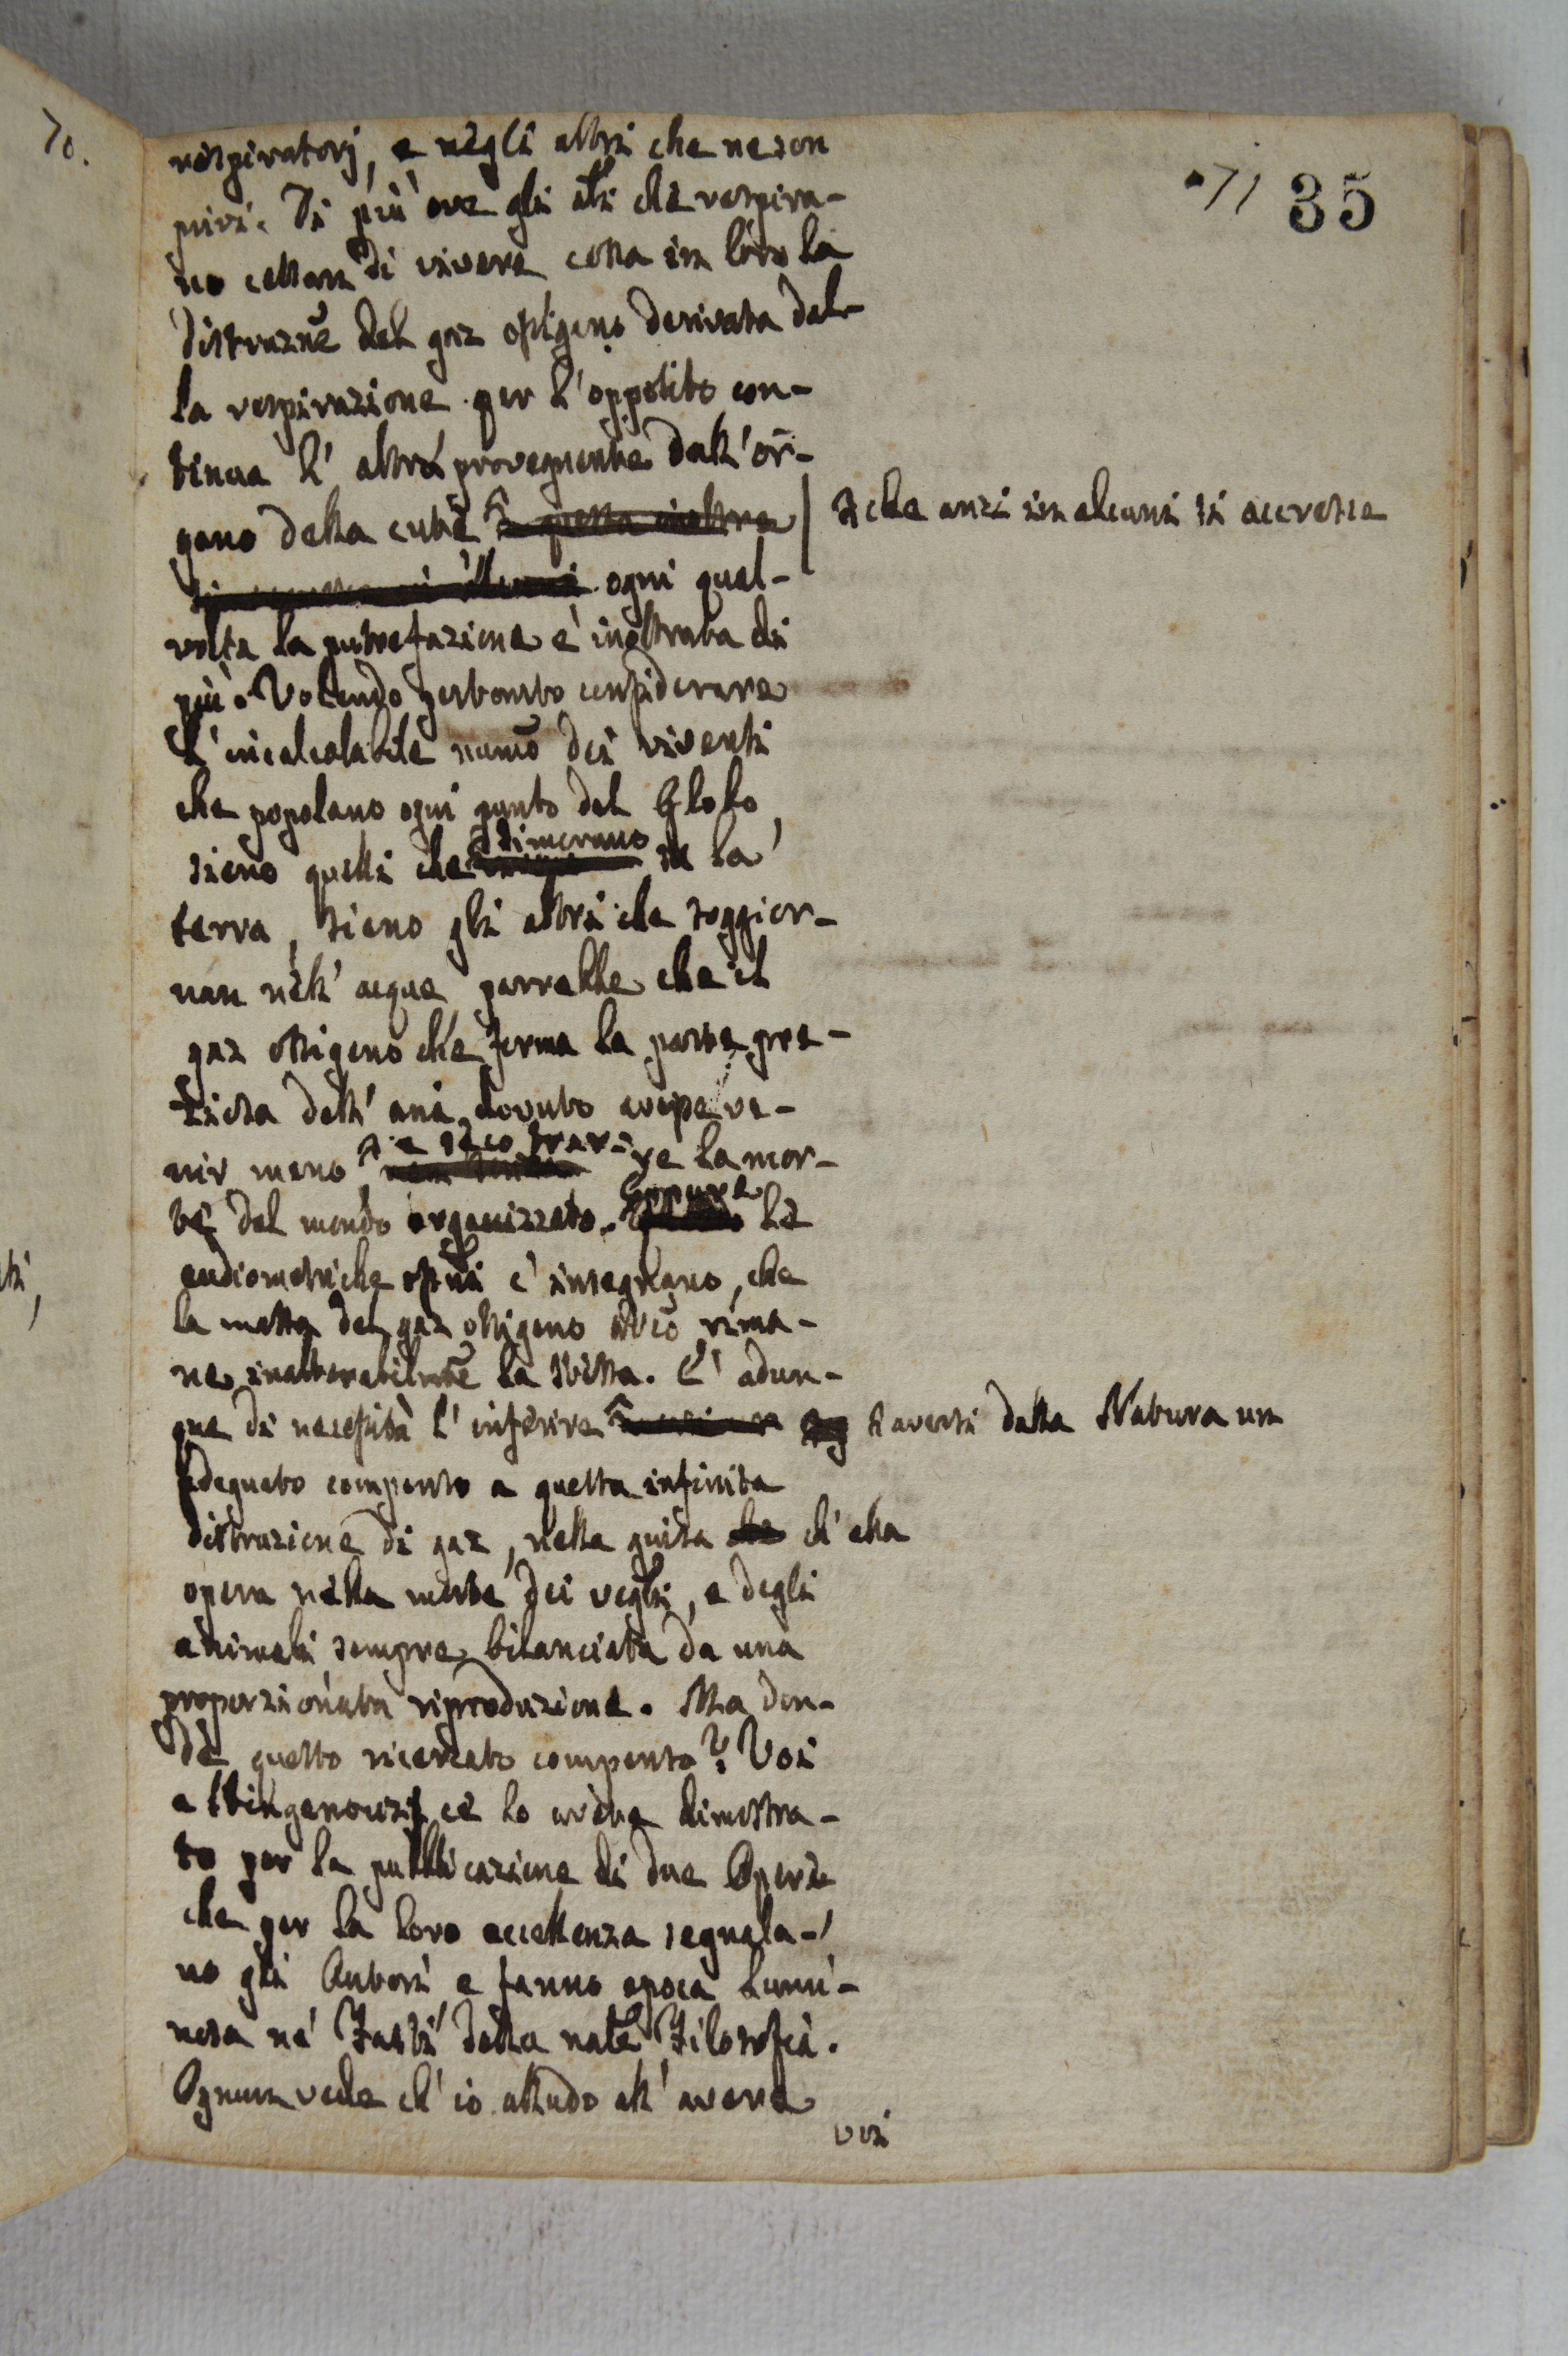 70.
71 35
respiratorj, e negli altri che ne son
privi. Di più ove gli ali che respira-
no cessan di vivere cessa in loro la
distruzne del gaz ossigeno derivata dal-
la respirazione per l'opposito con-
tinua l'altra provegnente dall'or-
gano della cute questa inoltre che anzi in alcuni si accresce
ogni qual-
volta la putrefazione è inoltrata di
più. Volendo pertanto considerare
l'incalcolabile numo dei viventi
che popolano ogni punto del Globo,
dimorano
sieno quelli che su la
terra, sieno gli altri che soggior-
nan nell'acque parrebbe che il
gaz ossigeno che forma la parte pre-
ziosa dell'aria dovuto avesse ve-
e seco trar-
nir meno re la mor-
Eppure
te del mondo organizzato. Le
eudiometriche spni c'insegnano, che
la massa del gaz ossigeno atmco rima-
ne inalterabilmte la stessa. E' adun-
que di necessità l'inferire aversi dalla Natura un
adeguato compenso a questa infinita
distruzione di gaz, nella guisa ch'essa
opera nella morte dei vegli, e degli
animali sempre bilanciata da una
proporzionata riproduzione. Ma don-
de questo ricercato compenso? Voi
e Ibingenouzif ce lo avete dimostra-
to per la pubblicazione di due Opere
che per la loro eccellenza segnala-
no gli Autori e fanno epoca lumi-
nosa ne' Fasti della nale Filosofia.
Ognun vede ch'io alludo all'avere
voi